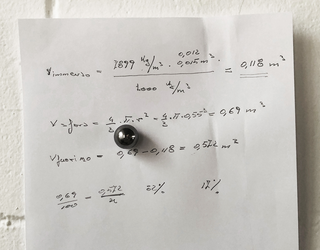 V immerso = 7899 kg/m³ · 0,012 0,015 m³ / 1000 kg/m³ = 0,118 m³
V sfera = 4/3 · π · r³ = 4/3 · π · 0,55³ = 0,69 m³
V fuori = 0,69 - 0,118 = 0,572 m³
0,69/100 = 0,572/x 22% 17%